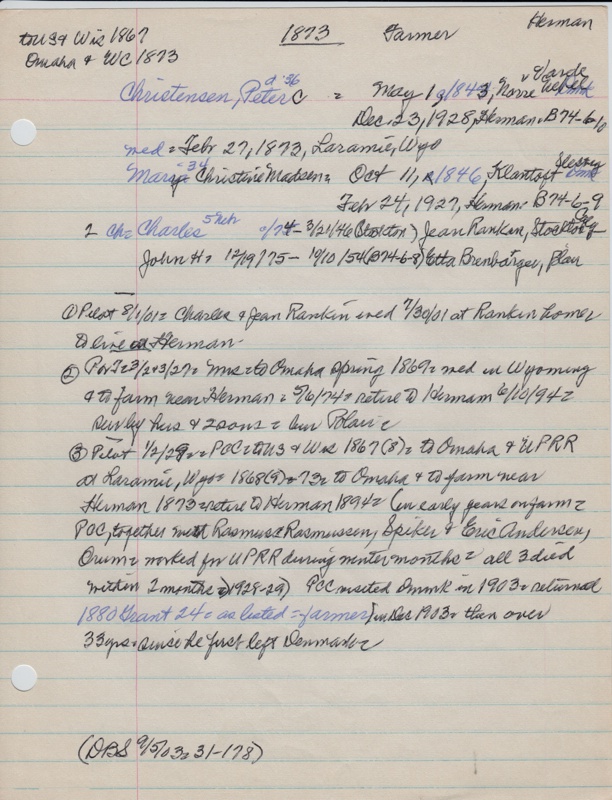 to US & Wis 1867 1873 Farmer Herman
Omaha & WC 1873
Christensen, Peter C = May 1, 1843, Norre
Dec. 23, 1928, Herman = B74-6-10
med = Feb 27, 1873, Laramie, Wyo
Mary Christine Madsen = Oct 11, 1846, Klantoft
Feb 24, 1927, Herman = B74-6-9
2 ch = Charles - 3/21/46 (Stockton) Jean Rankin, Stockton
John H = 12/19/75 - 10/10/54 (B74-6-8) Etta Brenbarger, Blair
① Pilot 8/1/01 = Charles & Jean Rankin wed 7/30/01 at Rankin home =
to live at Herman -
② = 3/2 + 3/27 = Mrs = to Omaha spring 1869 = med in Wyoming
& to farm near Herman = 5/6/74 = retire to Herman 6/10/94 =
surv by hus & 2 sons = bur Blair =
③ Pilot 1/2/29 = PCC = to US & Wis 1867(8) = to Omaha & UPRR
at Laramie, Wyo = 1868(9) = 73 = to Omaha & to farm near
Herman 1873 = retire to Herman 1894 = (in early years on farm =
PCC, together with Rasmus Rasmussen, Spiker & Eric Andersen,
Orum = worked for UPRR during winter months = all 3 died
within 2 months = 1928-29) PCC visited Dnmk in 1903 = returned
1880 Grant 24 = as listed = farmer in Dec 1903 = then over
33 yrs = since he first left Denmark =
(DBS 9/5/03 = 31-178)